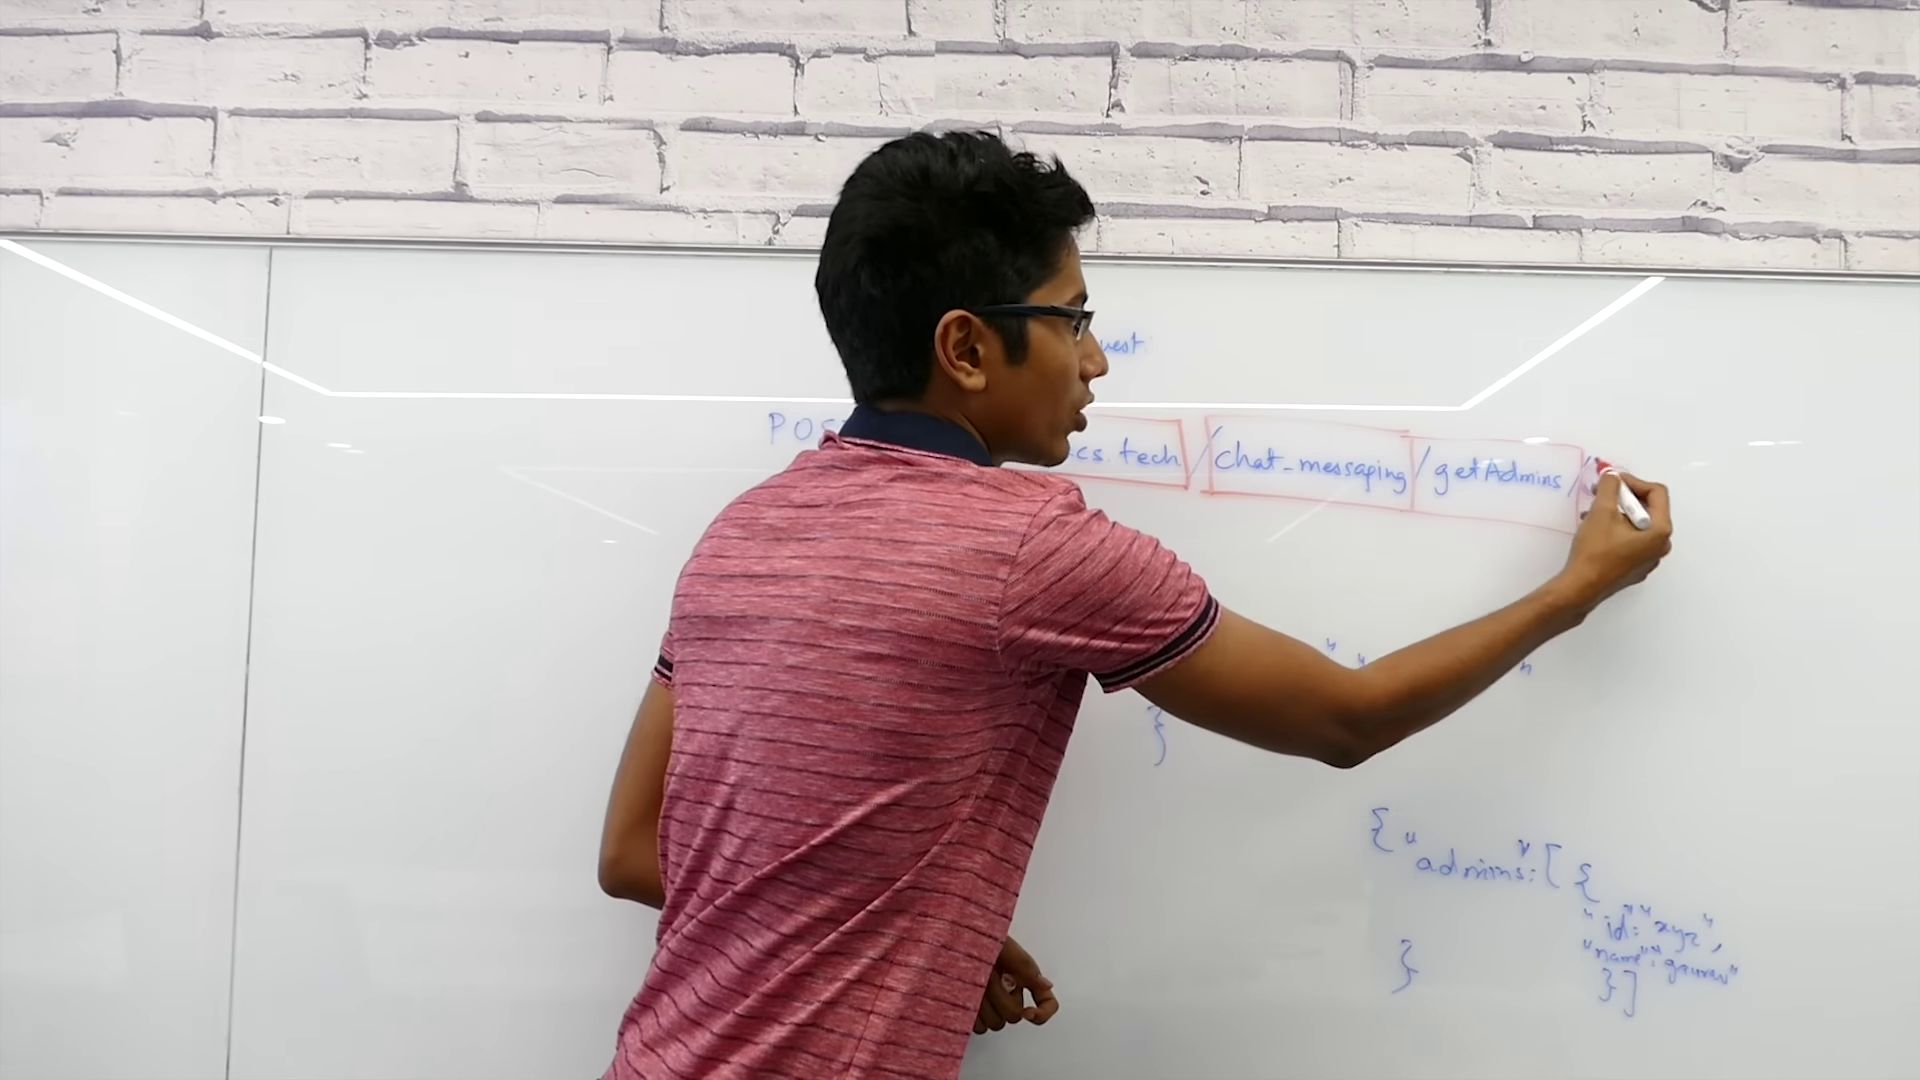 uest:
POS cs.tech/chat_messaging/getAdmins/
" " "
}
{ "admins": [ {
"id": "xyz",
"name": "gaurav"
} ]
}